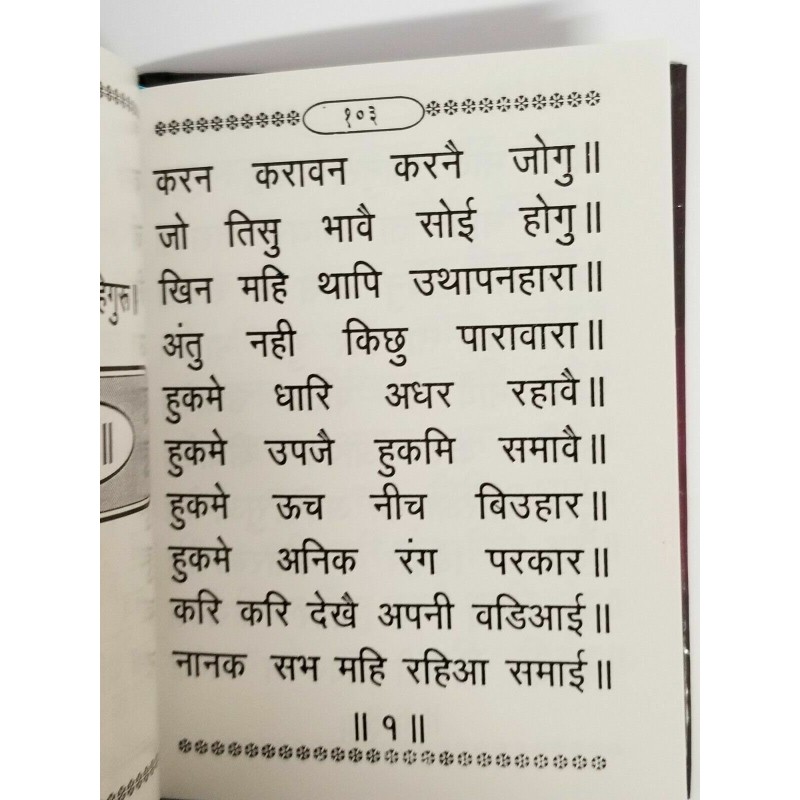 १०३
करन करावन करनै जोगु॥
जो तिसु भावै सोई होगु॥
खिन महि थापि उथापनहारा॥
अंतु नही किछु पारावारा॥
हुकमे धारि अधर रहावै॥
हुकमे उपजै हुकमि समावै॥
हुकमे ऊच नीच बिउहार॥
हुकमे अनिक रंग परकार॥
करि करि देखै अपनी वडिआई॥
नानक सभ महि रहिआ समाई॥
॥१॥